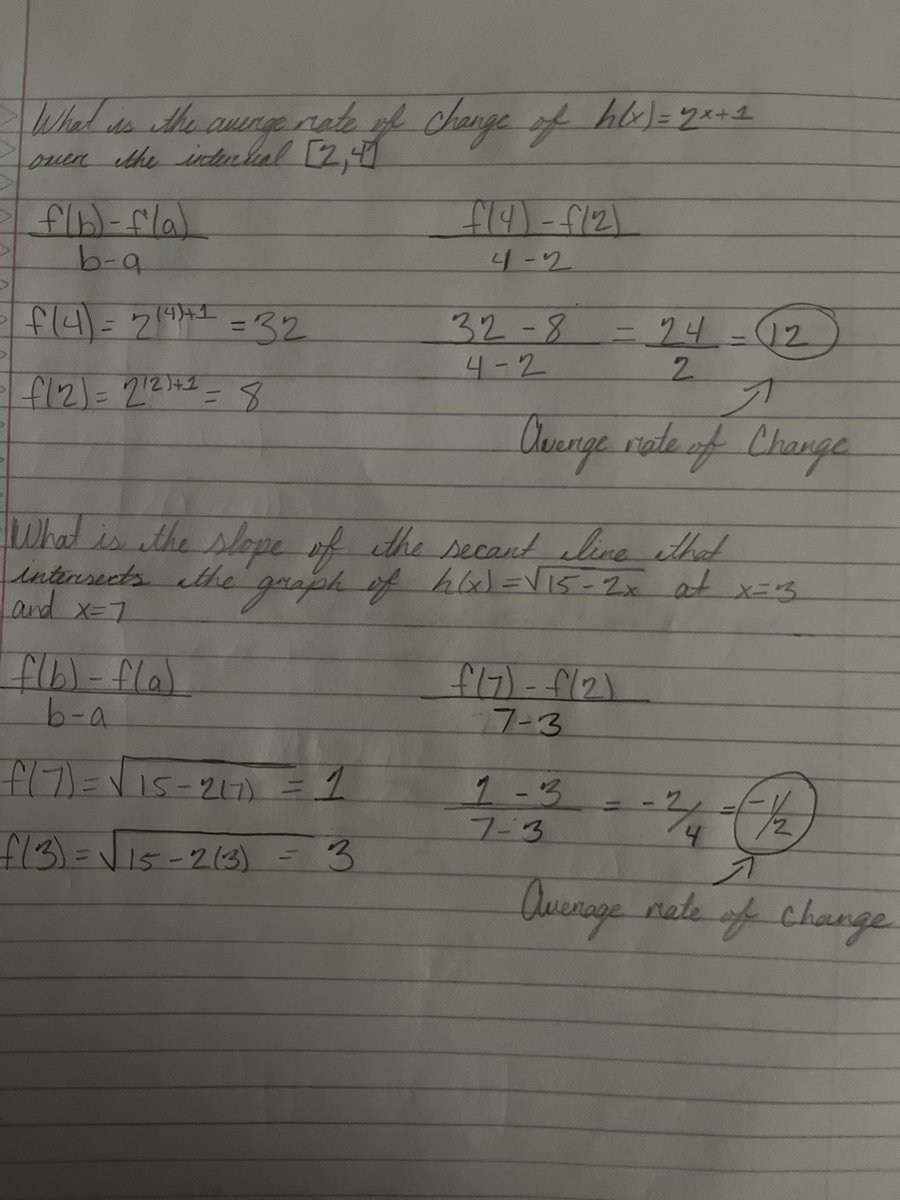 What is the averge rate of change of h(x)=2^x+1
over the interval [2,4]
f(b)-f(a) / b-a
f(4)-f(2) / 4-2
f(4)=2^(4)+1 =32
32-8 / 4-2 = 24/2 = 12
f(2)=2^(2)+1 = 8
Averge rate of Change
What is the slope of the secant line that
intersects the graph of h(x)=√15-2x at x=3
and x=7
f(b)-f(a) / b-a
f(7)-f(2) / 7-3
f(7)=√15-2(7) = 1
1-3 / 7-3 = -2/4 = -1/2
f(3)=√15-2(3) = 3
Average rate of change